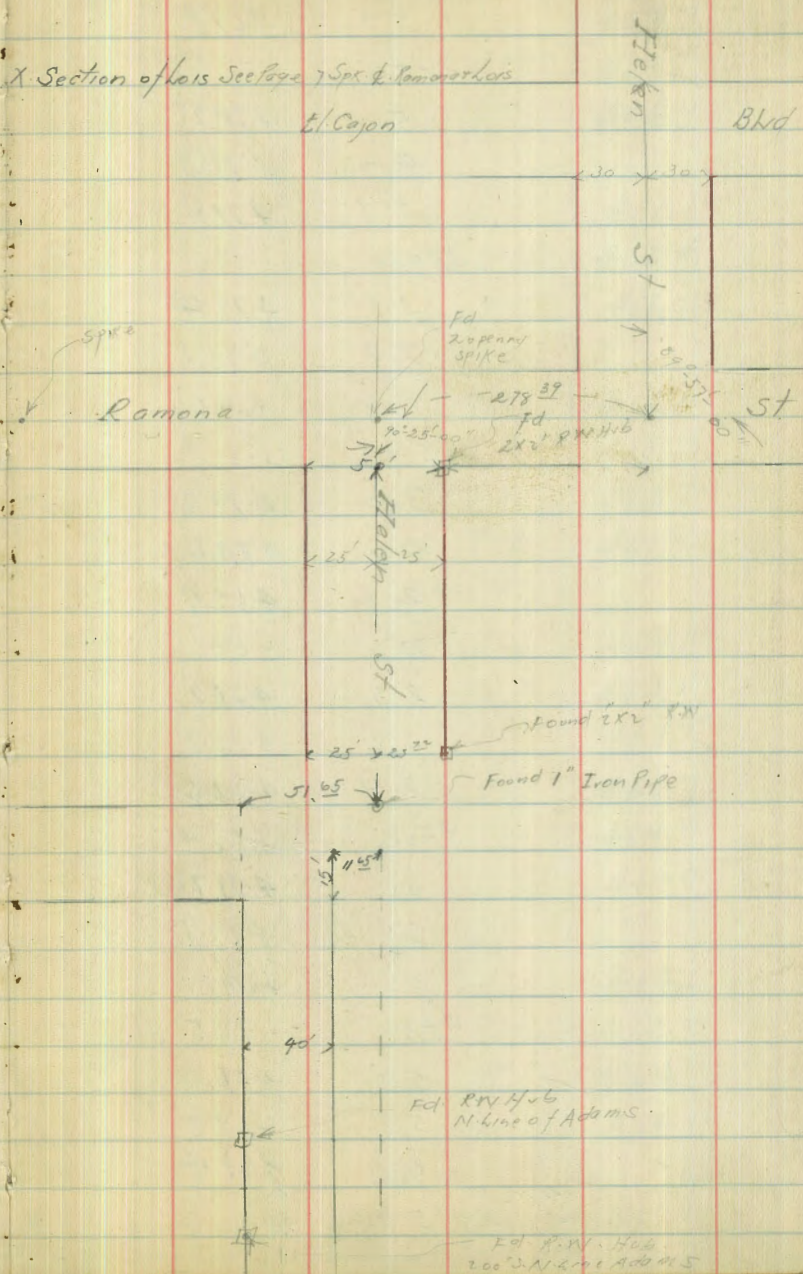 X Section of Lois See Page 7 Spk ₵ Ramona & Lois
El Cajon
Blvd
Helen
St
30 30
Spike
Fd
20 penny
spike
Ramona
278 39
St
90°-25'-00"
Fd
2x2" R.W Hub
50'
Helen
St
25' 25'
Found 2"x2" R.W
25'
Found 1" Iron Pipe
51.65
15'
11 65
40'
Fd. RW Hub
N. Line of Adams
Fd. R.W. Hub
200' S. N Line Adams